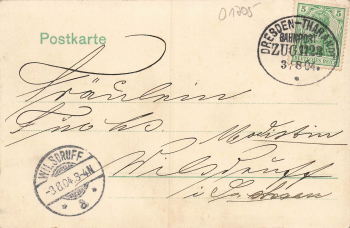 01705
Postkarte
5 5
DRESDEN-THARANDT
BAHNPOST
ZUG 1128
3/8 04.
Fräulein
Fuchs. Modistin
Wilsdruff
i. Sachsen
WILSDRUFF
-3.8.04.3-4N
* a *